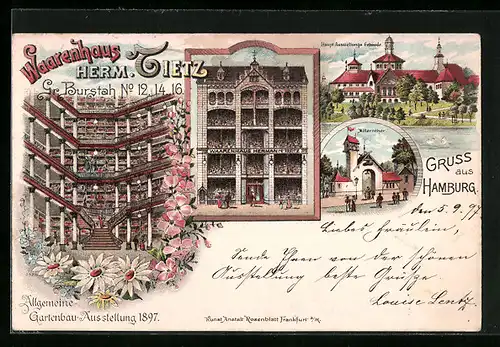 Waarenhaus
HERM. TIETZ
Gr. Burstah No 12. 14. 16.
Haupt-Ausstellungs-Gebäude
WAARENHAUS HERMANN TIETZ
Alsterthor
GRUSS
aus
HAMBURG.
den 5. 9. 97
Liebes Fräulein,
Sende Ihnen von der schönen
Ausstellung beste Grüsse.
Louise Lentz
Allgemeine
Gartenbau-Ausstellung 1897.
Kunst Anstalt Rosenblatt Frankfurt a/M.